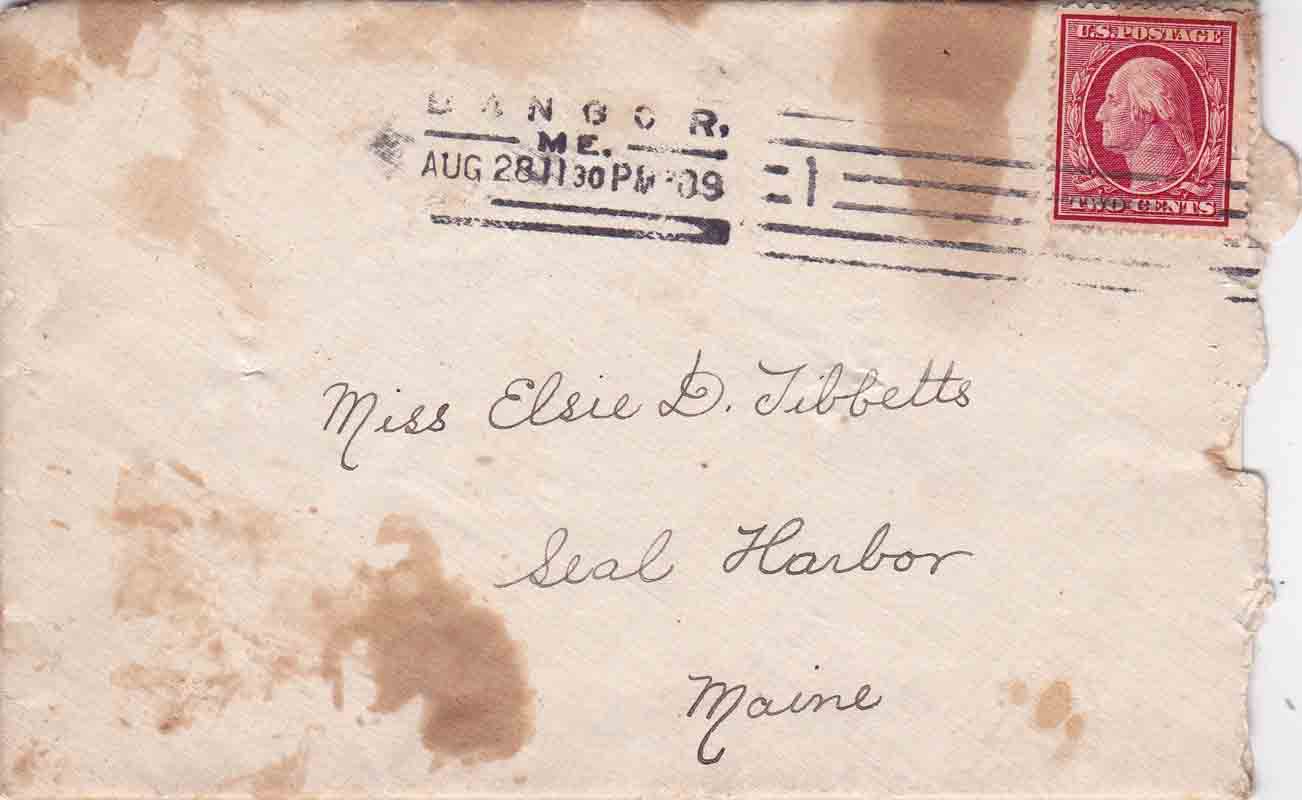 U.S. POSTAGE
TWO CENTS
BANGOR,
ME.
AUG 28 11 30 PM '09
1
Miss Elsie D. Tibbetts
Seal Harbor
Maine